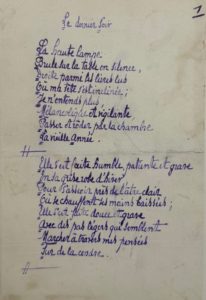 1
Le dernier soir
La haute lampe
Brûle sur la table en silence,
Droite parmi les livres lus
Où ma tête s'est inclinée;
Je n'entends plus
Mélancolique et vigilante
Passer et rôder par la chambre
La vieille Année.
Elle s'est faite humble, patiente et grave
En sa grise robe d'hiver
Pour s'asseoir près de l'âtre clair
Où se chauffent ses mains baissées;
Elle s'est faite douce et grave
Avec des pas légers qui semblent
Marcher à travers mes pensées
Sur de la cendre.